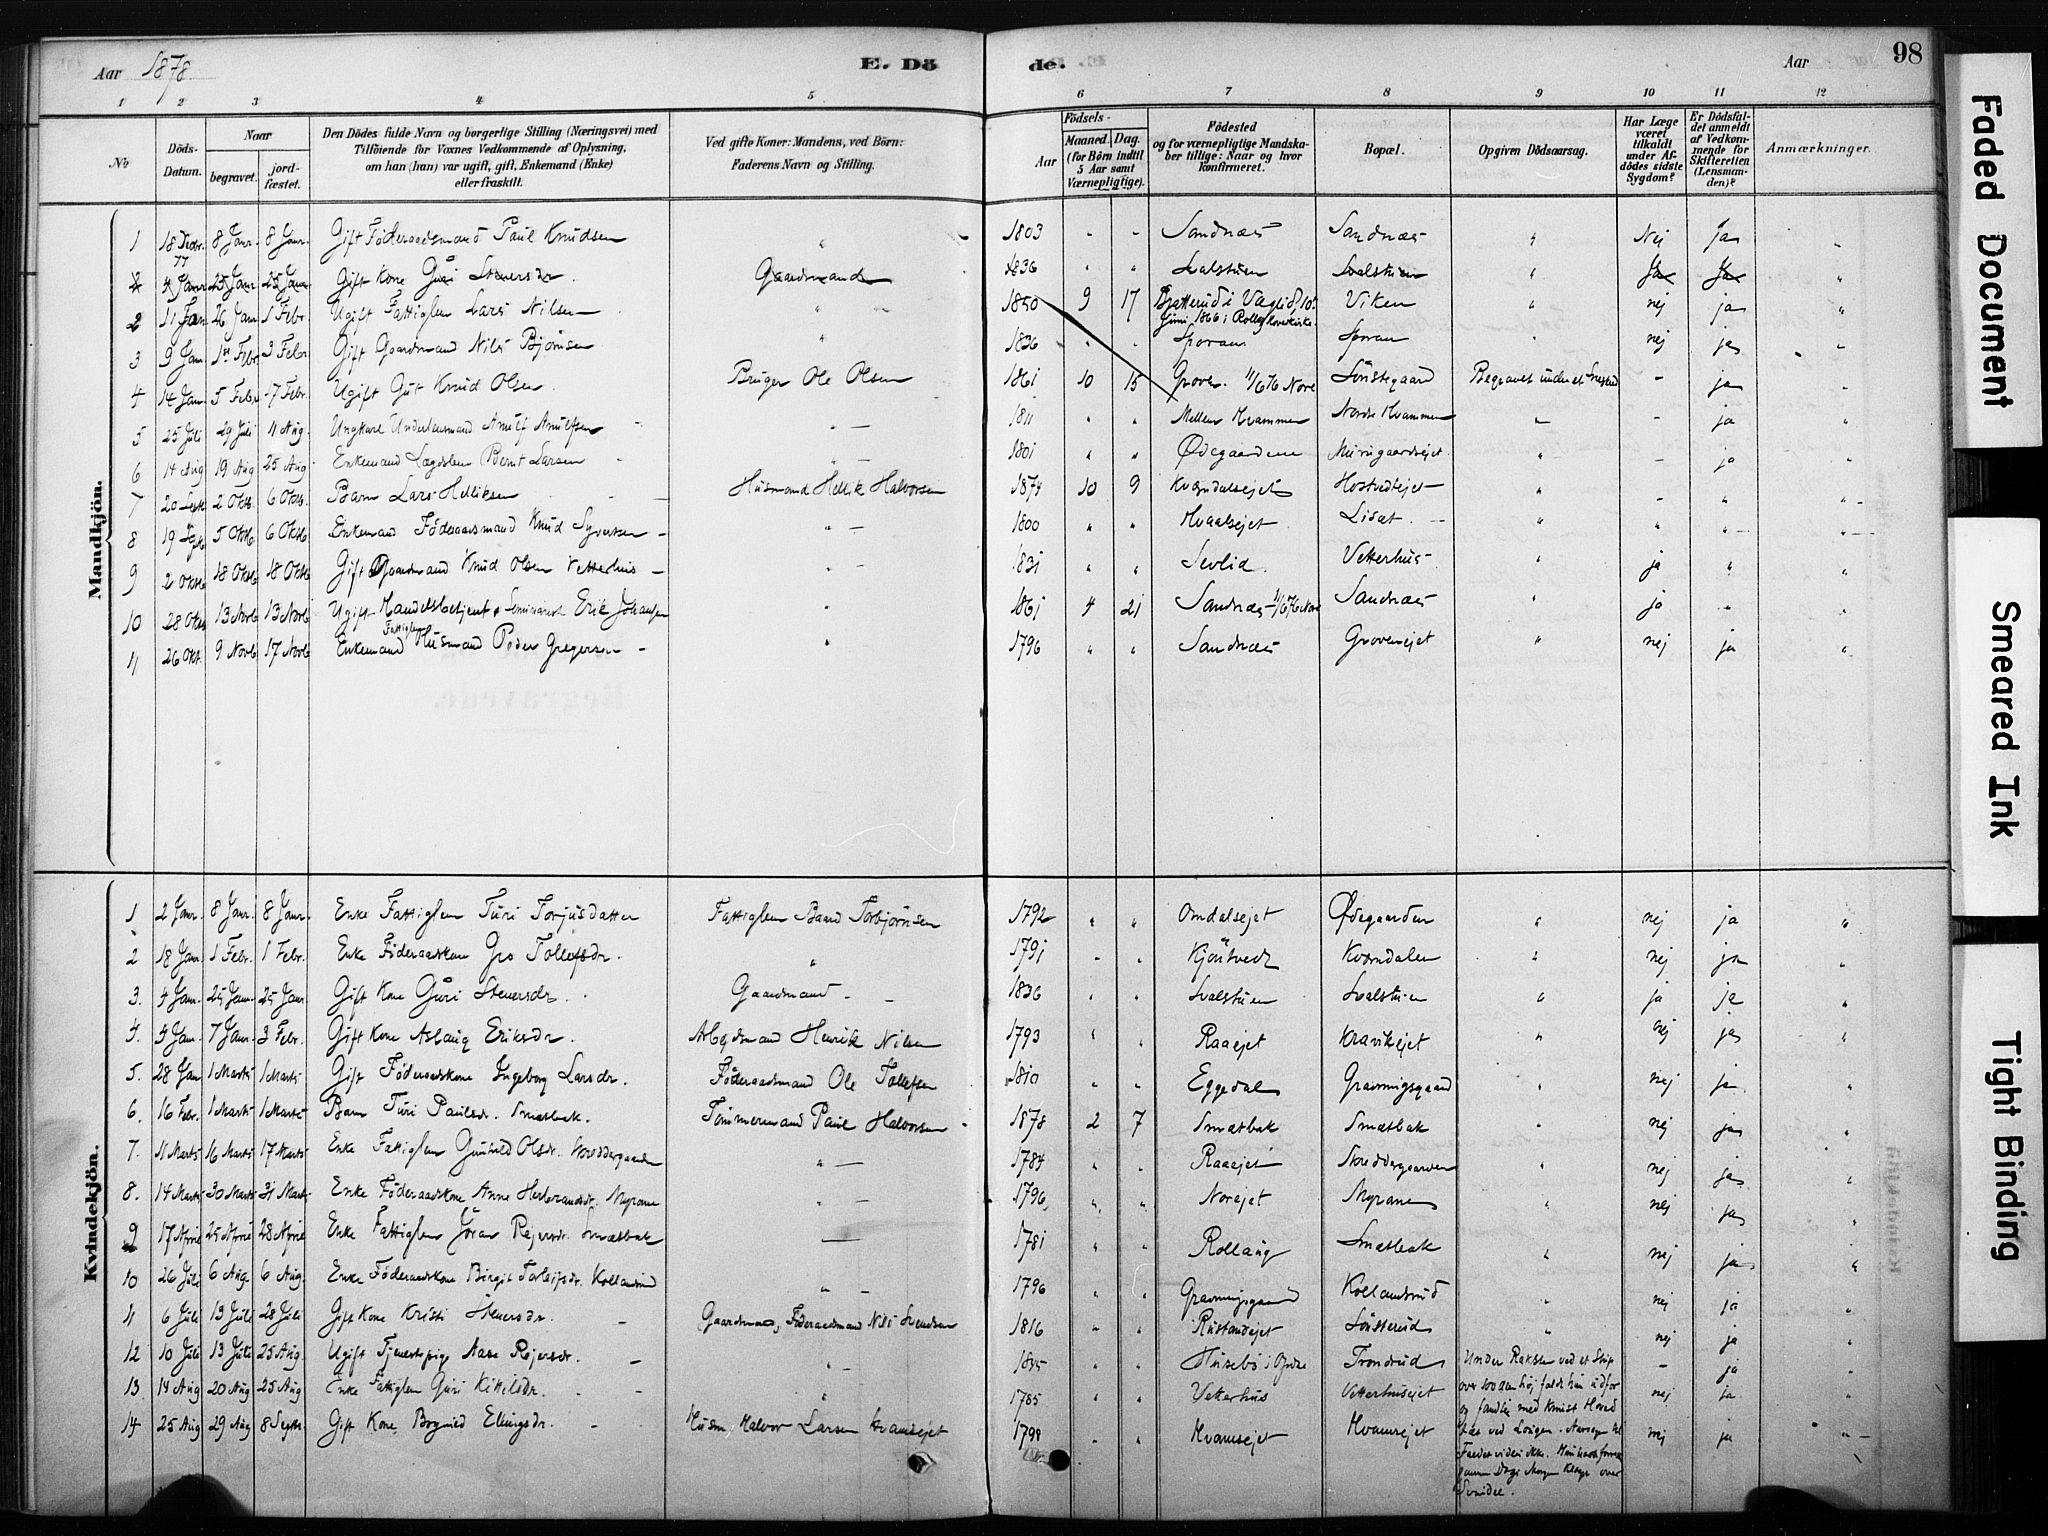 Aar 1878 E. Dö
de. Aar 98
1 2 3 4 5 6 7 8 9 10 11 12
No
Döds-Datum.
Naar
begravet. jord-fæstet.
Den Dödes fulde Navn og borgerlige Stilling (Næringsvei) med
Tilföiende for Voxnes Vedkommende af Oplysning,
om han (hun) var ugift, gift, Enkemand (Enke)
eller fraskilt.
Ved gifte Koner: Mandens, ved Börn:
Faderens Navn og Stilling.
Födsels-
Aar Maaned. Dag.
(for Börn indtil
5 Aar samt
Værnepligtige).
Födested
og for værnepligtige Mandska-
ber tillige: Naar og hvor
konfirmeret.
Bopæl.
Opgiven Dödsaarsag.
Har Læge
været
tilkaldt
under Af-
dödes sidste
Sygdom?
Er Dödsfal-
det anmeldt
af Vedkom-
mende for
Skifteretten
(Lensman-
den)?
Anmærkninger.
Mandkjön.
1 18 Decbr. 77 8 Janr. 8 Janr. Gift Föderaadsmand Paul Knudsen " 1803 - - Sandnæs Sandnæs " Nej Ja "
2 4 Janr 25 Janr 25 Janr Gift Kone Guri Steuersdr. Gaardmand 1836 " " Svalstuen Svalstuen " Ja Ja "
2 11 Jan 26 Jan 1 Febr. Ugift Fattiglem Lars Nilsen " 1850 9 17 Bratterud i Væglid, 10de Viken " nej ja "
Juni 1866 i Rollag Hovedkirke.
3 9 Jan. 1st Febr 3 Febr. Gift Gaardmand Nils Bjørnsen " 1836 " " Sporan Sporan " nej ja "
4 14 Jan. 5 Febr. 7 Febr. Ugift Gut Knud Olsen. Bruger Ole Olsen 1861 10 15 Grove. 11/6 76 Nore Sönstegaard Begravet under et Sneskred - ja
5 25 Juli 29 Juli 4 Aug. Ungkarl Underlensmand Arnulf Arnulfsen " — 1811 " " Mellem Hvammen Nordre Hvammen - ja "
6 14 Aug 19 Aug 25 Aug. Enkemand Lægdslem Bernt Larsen " — 1801 " " Ødegaardene " - ja "
7 20 Septb 2 Oktb 6 Oktb. Barn Lars Helliksen Husmand Hellik Halvorsen 1874 10 9 Kværndalsejet Hostvedtejet " - " "
8 19 Septb 5 Oktb 6 Oktb Enkemand Föderaadsmand Knud Syversen " — 1800 " " Hvaalsejet Lisæt. " " " "
9 2 Oktb 18 Oktb 18 Oktb Gift Gaardmand Knud Olsen Vetterhus " 1831 " " Sevlid. Vetterhus " ja " "
10 28 Oktb 13 Novb 13 Novb Ugift Handelsbetjent & Seminarist Erik Johansen " 1861 4 21 Sandnæs 11/6 76 Nore Sandnæs " ja " "
11 26 Okt. 9 Novb 17 Novb Enkemand Fattiglem Husmand Peder Gregersen " 1796 " " Sandnæs Grovesejet " nej ja "
Kvindekjön.
1 2 Janr. 8 Janr. 8 Janr. Enke Fattiglem Turi Torjusdatter Fattiglem Baard Torbjörnsen 1792 " " Omdalsejet Ødegaarden " nej ja "
2 18 Jan. 1 Febr. 1 Febr. Enke Föderaadskone Gro Tollefsdr. " 1791 - " Kjöntvedt Kværndalen " nej ja "
3. 4 Jan. 25 Jan. 25 Janr Gift Kone Guri Steuersdr. Gaardmand 1836 " " Svalstuen Svalstuen " ja ja "
4. 4 Jan. 7 Janr. 3 Febr. Gift Kone Aslaug Eriksdr. Arbejdsmand Henrik Nilsen 1793 " " Raaejet Kravikejet " nej ja "
5. 28 Jan 1 Marts 1 Marts Gift Föderaadskone Ingeborg Larsdr. Föderaadsmand Ole Tollefsen 1810 " " Eggedal Gravningsgaard " nej ja "
6. 16 Febr. 1 Marts 1 Marts Barn Turi Paulsdr. Smætbak. Tömmermand Paul Halvorsen 1878 2 7 Smætbak Smætbak " nej ja "
7. 11 Marts 16 Marts 17 Marts Enke Fattiglem Gunhild Olsdr. Skreddergaarden " — 1784 " " Raaejet Skreddergaarden " nej ja "
8. 14 Marts 30 Marts 31 Marts Enke Föderaadskone Anne Herbrandsdr. Myrane " - 1796 " " Norejet Myrane " nej ja "
9 17 April 25 April 28 April Enke Fattiglem Jöran Rejersdr. Smætbak — 1781 " " Rollaug Smætbak " nej ja "
10 26 Juli 6 Aug. 6 Aug. Enke Föderaadskone Birgit Torleifsdr. Kollandrud " - 1796 " " Gravningsgaard Kollandsrud " nej ja "
11 6 Juli 13 Juli 28 Juli Gift Kone Kristi Steuersdr. Gaardmand, Föderaadsmand Nils Svendsen 1816 " " Rustandejet Sönsterud " nej ja "
12 10 Juli 13 Juli 25 Aug. Ugift Tjenestepige Aase Rejersdr. " - 1835 " " Husebö i Opdal Trondrud Under Raksten ved et Stup - ja "
13 14 Aug 20 Aug 25 Aug Enke Fattiglem Guri Kittilsdr. " 1785 " " Vetterhus Vetterhusejet over 100 Alen höj faldt hun udfor nej ja "
14 25 Aug 29 Aug 8 Septbr. Gift Kone, Bogned Ellingsdr. Husm. Halvor Larsen Hvamsejet 1799 - " Hvamsejet Hvamsejet og fandtes med knust Hoved nej ja "
ved Laagen. Aarsagen til
Faldet vides ikke.
over
Svidde.
Faded Document
Smeared Ink
Tight Binding